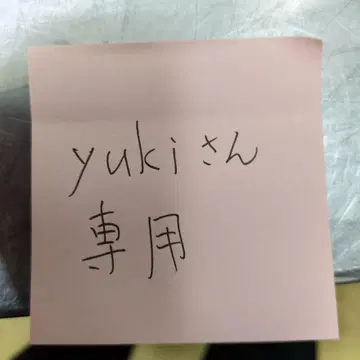 yukiさん
専用